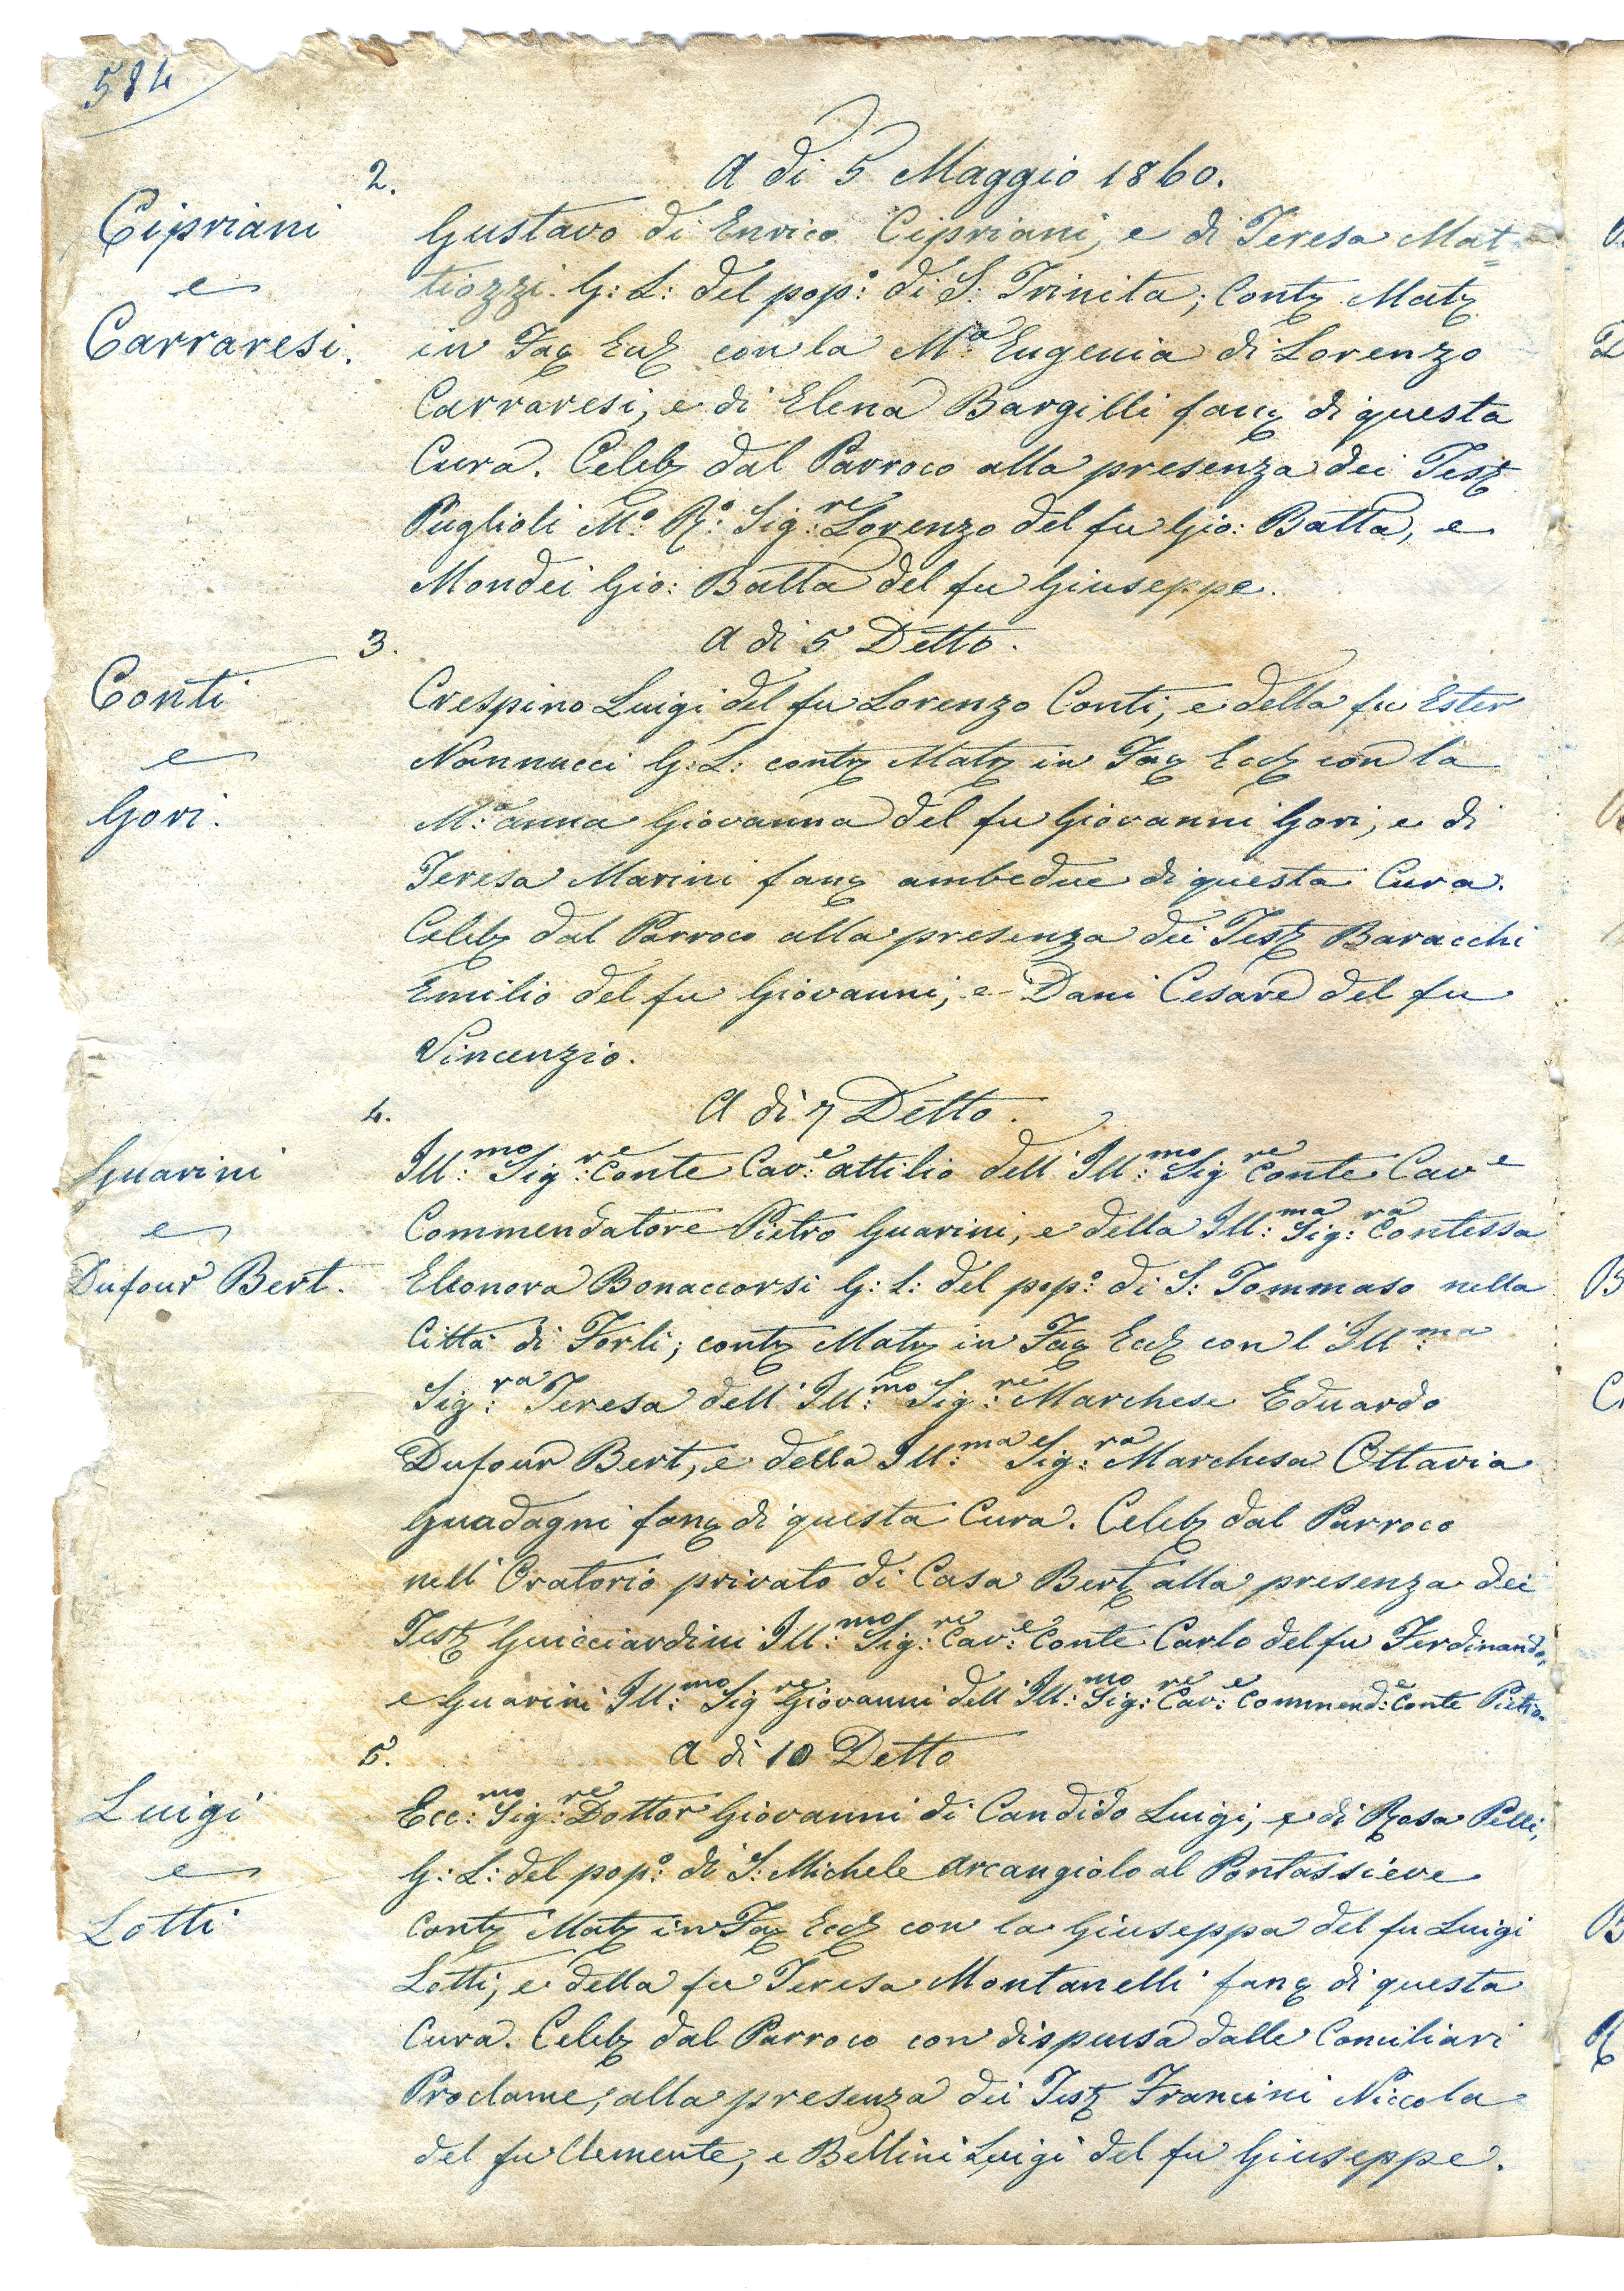 584
2. A di 5 Maggio 1860.
Cipriani
e
Carraresi.
Gustavo di Enrico Cipriani, e di Teresa Mat=
tiozzi. G: L: del pop:º di S: Trinita; Contz Matz
in Fac Eccl con la M:ª Eugenia di Lorenzo
Carraresi, e di Elena Bargilli fanc di questa
Cura. Celebz dal Parroco alla presenza dei Test
Puglioli M:º R:º Sig:re Lorenzo del fu Gio: Batta, e
Mondei Gio: Batta del fu Giuseppe.
3. A di 5 Detto.
Conti
e
Gori.
Crespino Luigi del fu Lorenzo Conti, e della fu Ester
Nannucci G: L: contz Matz in Fac Eccl con la
M:ª Anna Giovanna del fu Giovanni Gori, e di
Teresa Marini fanc ambedue di questa Cura.
Celebz dal Parroco alla presenza dei Test Baracchi
Emilio del fu Giovanni, e Dani Cesare del fu
Vincenzio.
4. A di 7 Detto.
Guarini
e
Dufour Bert.
Ill:mo Sig:re Conte Cav:e Attilio dell' Ill:mo Sig re Conte Cav e
Commendatore Pietro Guarini, e della Ill:ma Sig:ra Contessa
Eleonora Bonaccorsi G: L: del pop:º di S: Tommaso nella
Città di Forli; contz Matz in Fac Eccl con l' Ill:ma
Sig:ra Teresa dell' Ill:mo Sig:re Marchese Eduardo
Dufour Bert, e della Ill:ma Sig:ra Marchesa Ottavia
Guadagni fanc di questa Cura. Celebz dal Parroco
nell' Oratorio privato di Casa Bert alla presenza dei
Test Guicciardini Ill:mo Sig:re Cav:e Conte Carlo del fu Ferdinando,
e Guarini Ill:mo Sig re Giovanni dell' Ill:mo Sig:re Cav:e Commend:e Conte Pietro.
5. A di 10 Detto
Luigi
e
Lotti
Ecc:mo Sig:re Dottor Giovanni di Candido Luigi, e di Rosa Pelli,
G: L: del pop:º di S: Michele Arcangiolo al Pontassieve
Contz Matz in Fac Eccl con la Giuseppa del fu Luigi
Lotti, e della fu Teresa Montanelli fanc di questa
Cura. Celebz dal Parroco con dispensa dalle Conciliari
Proclame, alla presenza dei Test Francini Niccola
del fu Clemente, e Bellini Luigi del fu Giuseppe.